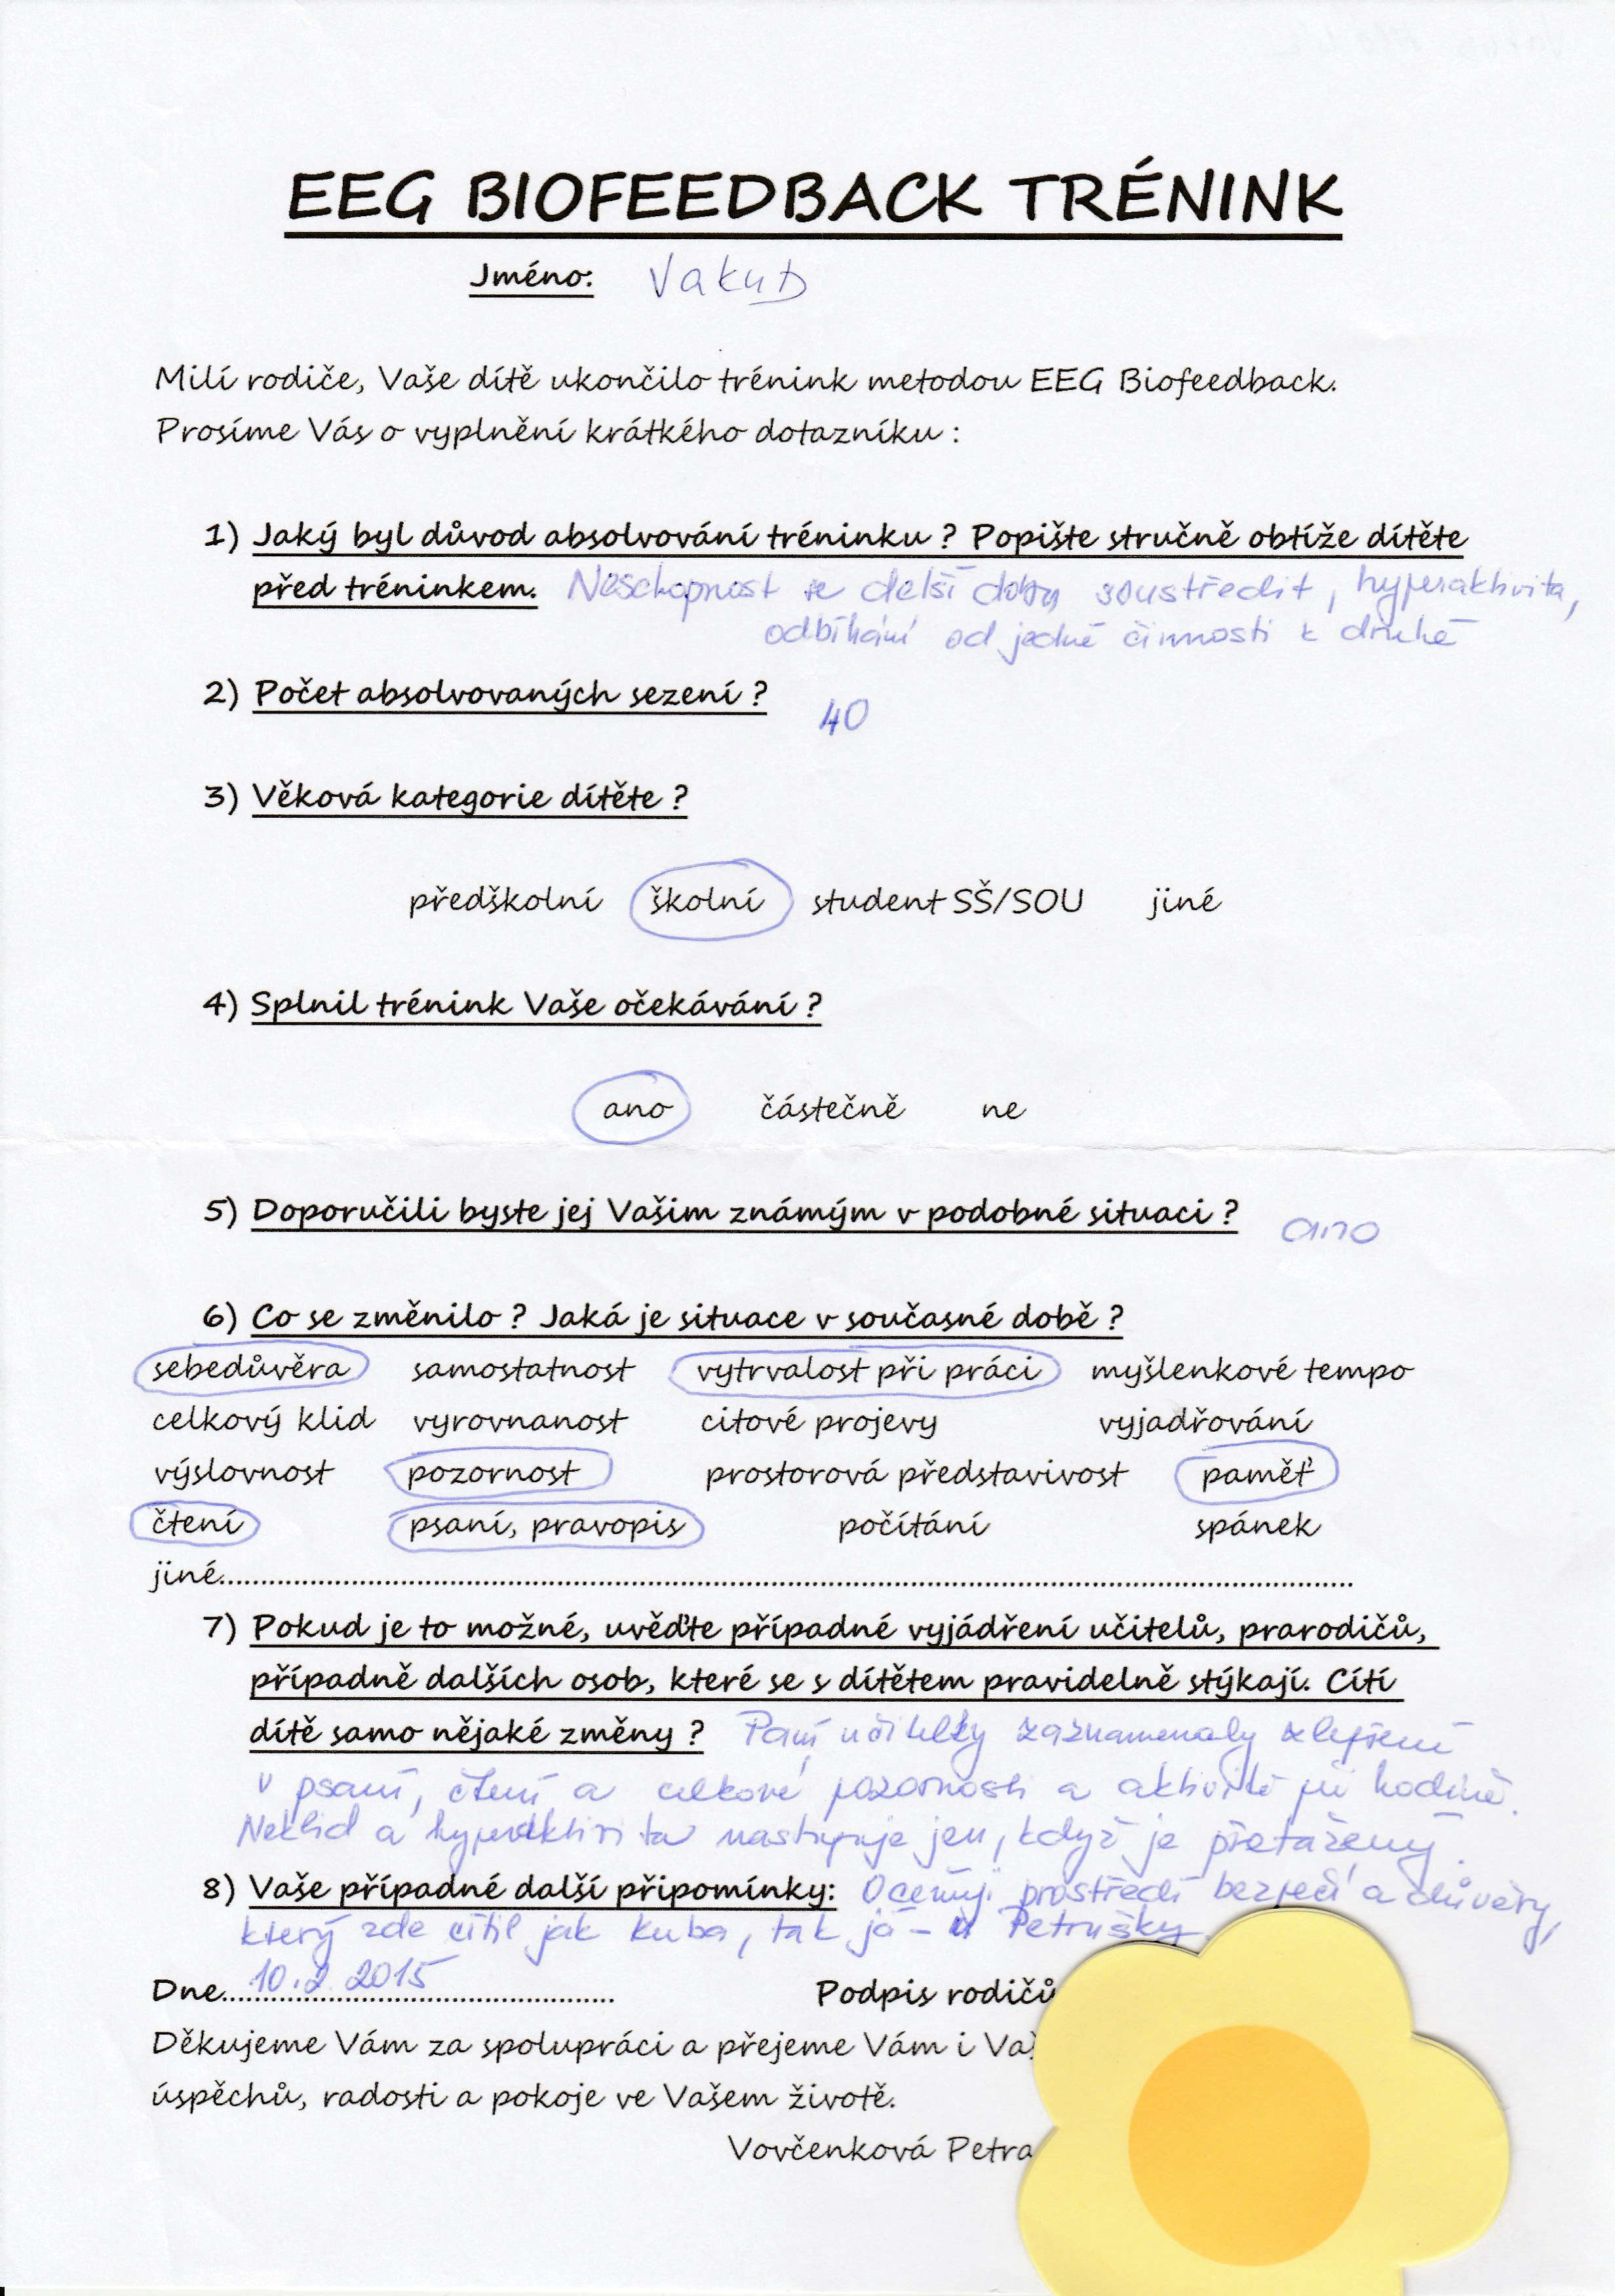 EEG BIOFEEDBACK TRÉNINK
Jméno: Vakub
Milí rodiče, Vaše dítě ukončilo trénink metodou EEG Biofeedback.
Prosíme Vás o vyplnění krátkého dotazníku :
1) Jaký byl důvod absolvování tréninku ? Popište stručně obtíže dítěte
před tréninkem. Neschopnost se delší dobu soustředit, hyperaktivita,
odbíhání od jedné činnosti k druhé
2) Počet absolvovaných sezení ? 40
3) Věková kategorie dítěte ?
předškolní školní student SŠ/SOU jiné
4) Splnil trénink Vaše očekávání ?
ano částečně ne
5) Doporučili byste jej Vašim známým v podobné situaci ? ano
6) Co se změnilo ? Jaká je situace v současné době ?
sebedůvěra samostatnost vytrvalost při práci myšlenkové tempo
celkový klid vyrovnanost citové projevy vyjadřování
výslovnost pozornost prostorová představivost paměť
čtení psaní, pravopis počítání spánek
jiné........................................
7) Pokud je to možné, uvěďte případné vyjádření učitelů, prarodičů,
případně dalších osob, které se s dítětem pravidelně stýkají. Cítí
dítě samo nějaké změny ? Paní učitelky zaznamenaly zlepšení
v psaní, čtení a celkové pozornosti a aktivitě při hodině.
Neklid a hyperaktivita nastupuje jen, když je přetažený.
8) Vaše případné další připomínky: Oceňuji prostředí bezpečí a důvěry,
který zde cítil jak Kuba, tak já - u Petrušky.
Dne....10.2.2015....................
Podpis rodičů
Děkujeme Vám za spolupráci a přejeme Vám i Vaš
úspěchů, radosti a pokoje ve Vašem životě.
Vovčenková Petra